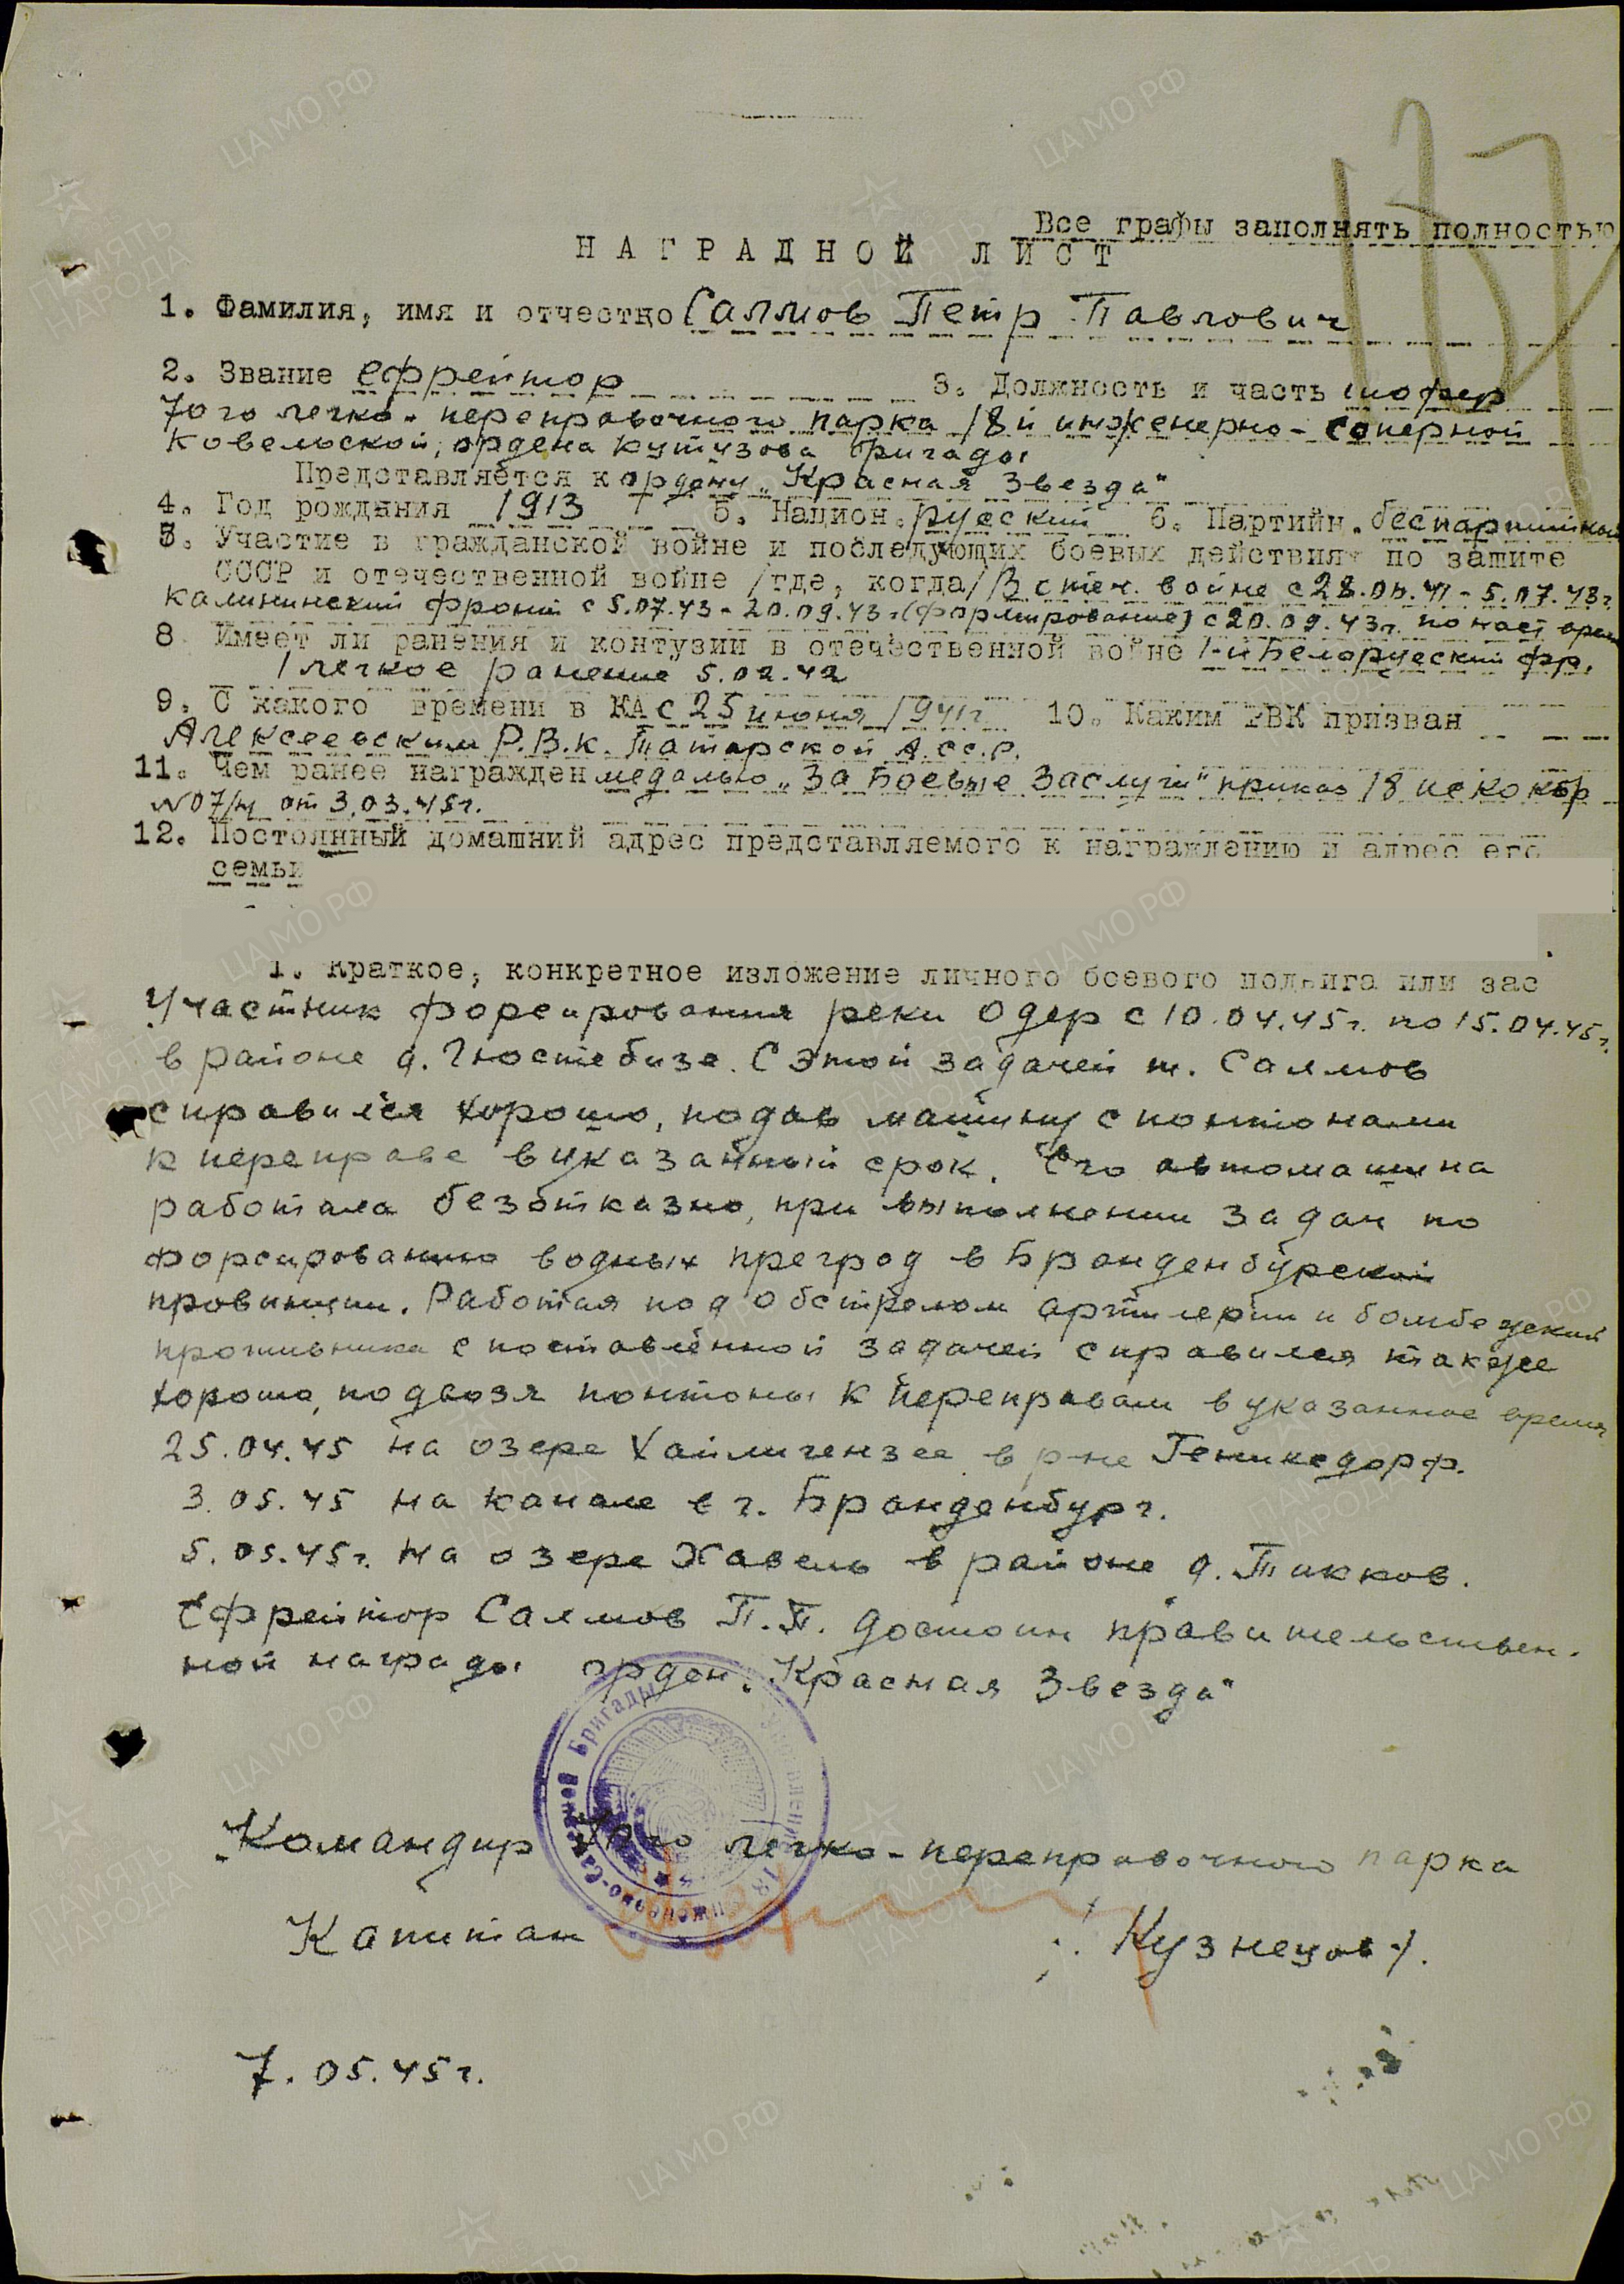 Все графы заполнять полностью
НАГРАДНОЙ ЛИСТ
1. Фамилия, имя и отчество Саллов Петр Павлович
2. Звание ефрейтор 3. Должность и часть шофер
70го легко-переправочного парка 18й инженерно-саперной
Ковельской, ордена Кутузова бригады
Представляется к ордену „Красная Звезда"
4. Год рождения 1913 5. Национ. русский 6. Партийн. беспартийный
Участие в гражданской войне и последующих боевых действиях по защите
СССР и отечественной войне /где, когда/ В отеч. войне с 28.06.41 - 5.07.43г.
Калининский фронт с 5.07.43 - 20.09.43г (формирование) с 20.09.43г. по наст время
8 Имеет ли ранения и контузии в отечественной войне 1-й Белорусский фр.
1 легкое ранение 5.02.42
9. С какого времени в КА с 25 июня 1941г 10. Каким РВК призван
Алексеевским Р.В.К. Татарской А.С.С.Р.
11. Чем ранее награжден медалью „За Боевые Заслуги" приказ 18 искокбр
№07/н от 3.03.45г.
12. Постоянный домашний адрес представляемого к награждению и адрес его
семьи
1. Краткое, конкретное изложение личного боевого подвига или зас
Участник форсирования реки Одер с 10.04.45г. по 15.04.45г.
в районе д. Гюстебизе. С этой задачей т. Саллов
справился хорошо, подав машину с понтонами
к переправе в указанный срок. Его автомашина
работала безотказно, при выполнении задач по
форсированию водных преград в Бранденбурской
провинции. Работая под обстрелом артилерии и бомбежкой
противника с поставленной задачей справился также
хорошо, подвозя понтоны к переправам в указанное время
25.04.45 на озере Хайлигензее в р-не Геникедорф.
3.05.45 на канале в г. Бранденбург.
5.05.45г. на озере Хавель в районе д. Тикков.
Ефрейтор Саллов П.П. достоин правительствен-
ной награды орден „Красная Звезда"
Командир 70го легко-переправочного парка
Капитан /Кузнецов/.
7.05.45г.